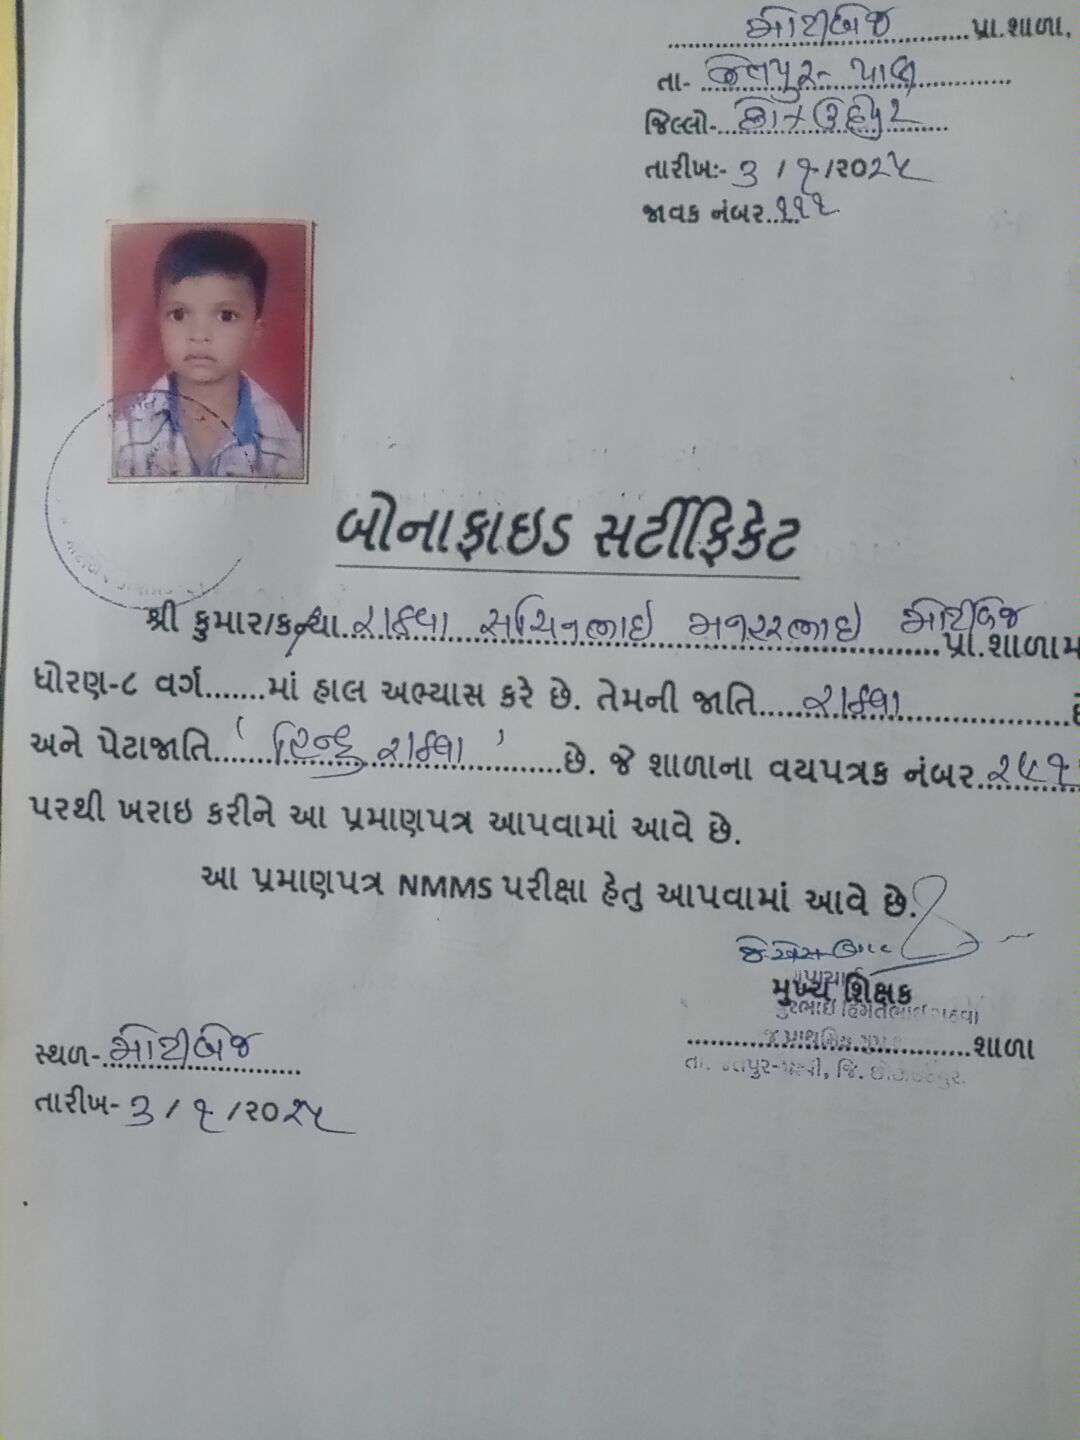 મોટીબેજ પ્રા.શાળા,
તા- જેતપુર-પાવી
જિલ્લો- છોટાઉદેપુર
તારીખઃ- ૩ / ૧ /૨૦૨૫
જાવક નંબર..૧૧૧
બોનાફાઇડ સર્ટીફિકેટ
શ્રી કુમાર/કન્યા. રાઠવા સચિનભાઇ મોટીબેજ પ્રા.શાળામ
ધોરણ-૮ વર્ગ.......માં હાલ અભ્યાસ કરે છે. તેમની જાતિ..... રાઠવા
અને પેટાજાતિ...... ' હિન્દુ રાઠવા ' છે. જે શાળાના વયપત્રક નંબર. ૨૫૧
પરથી ખરાઇ કરીને આ પ્રમાણપત્ર આપવામાં આવે છે.
આ પ્રમાણપત્ર NMMS પરીક્ષા હેતુ આપવામાં આવે છે.
મુખ્ય શિક્ષક
શાળા
સ્થળ- મોટીબેજ
તારીખ- ૩ / ૧ /૨૦૨૫